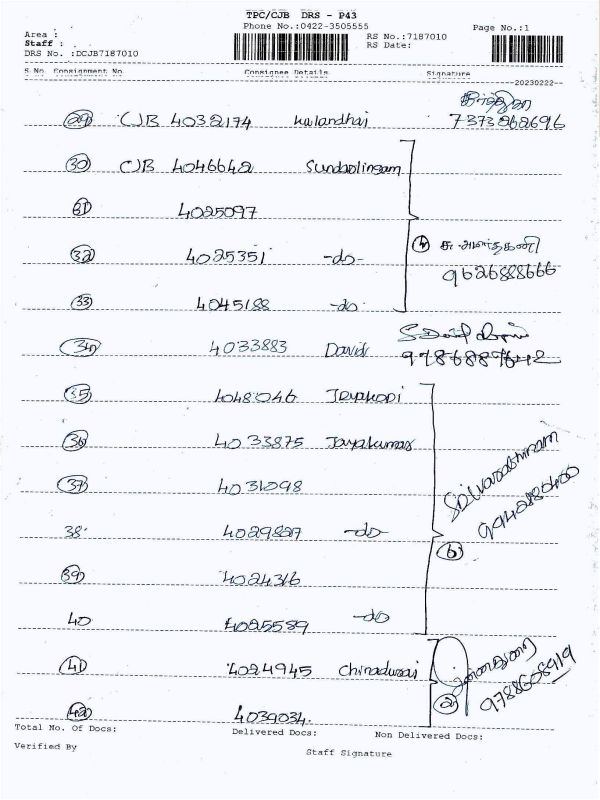 TPC/CJB DRS - P43
Phone No.:0422-3505555
Area :
Staff :
DRS No. :DCJB7187010
RS No.:7187010
RS Date:
Page No.:1
S No. Consignment No. Consignee Details Signature
20230222
29 CJB 4032174 Kulandhai
7373262696
30 CJB 4046642 Sundaolingam
31 4025097
32 4025351 -do-
4
9626888666
33 4045188 -do-
34 4033883 David
35 4048046
36 4033875 Jayakumar
37 4031098
38 4029827 -do-
6
39 4024316
40 4025589 -do
41 4024945 Chinadurai
9788608919
42 4039034
2
Total No. Of Docs: Delivered Docs: Non Delivered Docs:
Verified By Staff Signature